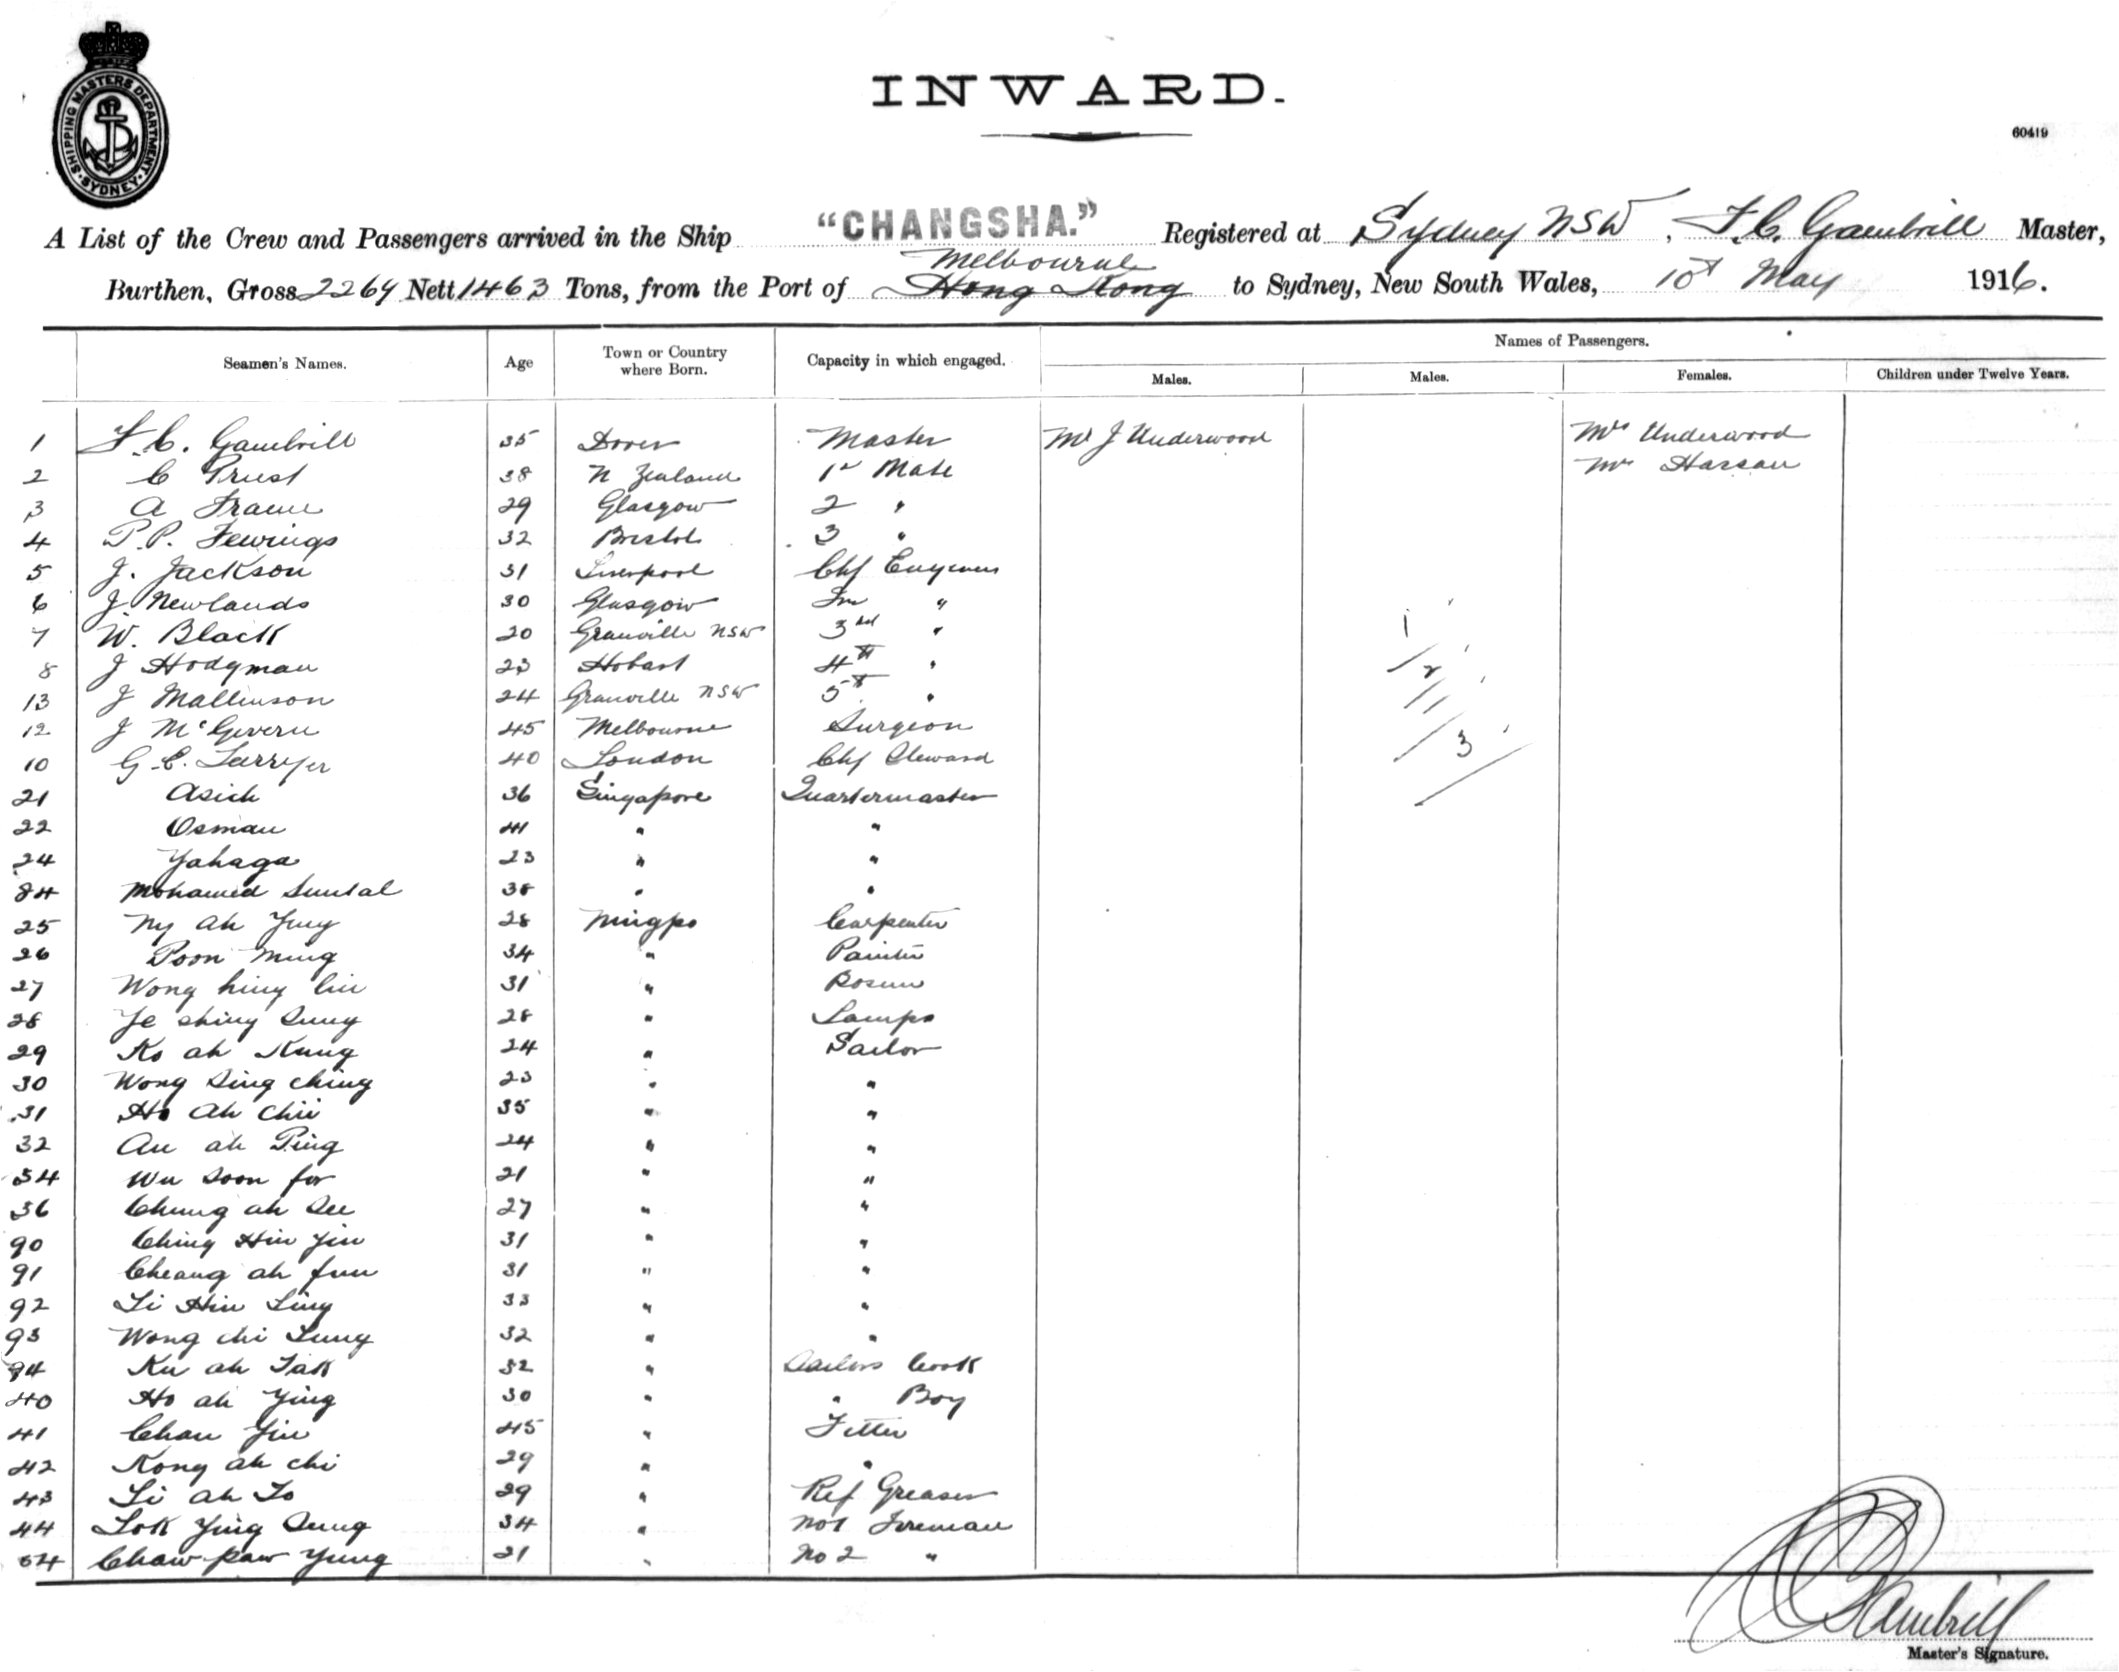 SHIPPING MASTERS DEPARTMENT · SYDNEY ·
INWARD.
60419
A List of the Crew and Passengers arrived in the Ship "CHANGSHA." Registered at Sydney NSW, F.C. Gambrill Master,
Melbourne
Burthen, Gross 2269 Nett 1463 Tons, from the Port of Hong Kong to Sydney, New South Wales, 10th May 1916.
Seamen's Names. Age Town or Country where Born. Capacity in which engaged. Names of Passengers.
Males. Males. Females. Children under Twelve Years.
1 F.C. Gambrill 35 Dover Master Mr J Underwood Mrs Underwood
2 C Trust 38 N Zealand 1st Mate Mrs Hassan
3 A Frame 29 Glasgow 2 "
4 P.P. Fewings 32 Bristol 3 "
5 J. Jackson 31 Liverpool Chf Engineer
6 J. Newlands 30 Glasgow "
7 W. Black 20 Granville NSW 3rd " 1
8 J Hodgman 23 Hobart 4th " 1/2
13 J Mallinson 24 Granville NSW 5th " 1/1
12 J McGovern 45 Melbourne Surgeon 3
10 G.E. 40 London Chf Steward
21 Asick 36 Singapore Quartermaster
22 Osman 41 " "
24 Yahaga 23 " "
84 Mohamed 38 " "
25 Ny ah 28 Ningpo Carpenter
26 Poon Ming 34 " Painter
27 Wong hing lin 31 " Bosun
28 Ye shing Sung 28 " Lamps
29 Ko ah Kung 24 " Sailor
30 Wong Sing ching 23 " "
31 Ho Ah Chii 35 " "
32 Au ah Ping 24 " "
34 Wu Soon for 21 " "
36 Chung ah See 27 " "
90 Ching Hin Jin 31 " "
91 Cheang ah fun 31 " "
92 Li Hin Ling 33 " "
93 Wong chi Lung 32 " "
94 Ku ah Tak 32 " Sailors Cook
40 Ho ah Ying 30 " " Boy
41 Chan Jin 45 " Fitter
42 Kong ah chi 29 " "
43 Li ah To 29 " Ref Greaser
44 Lok Ying Sung 34 " No 1 Fireman
54 Chaw paw Yung 21 " No 2 "
Gambrill
Master's Signature.